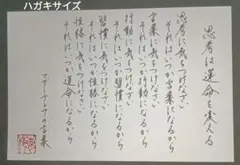 ハガキサイズ
思考は運命を変える
思考に気をつけなさい
それはいつか言葉になるから
言葉に気をつけなさい
それはいつか行動になるから
行動に気をつけなさい
それはいつか習慣になるから
習慣に気をつけなさい
それはいつか性格になるから
性格に気をつけなさい
それはいつか運命になるから
マザーテレサの言葉